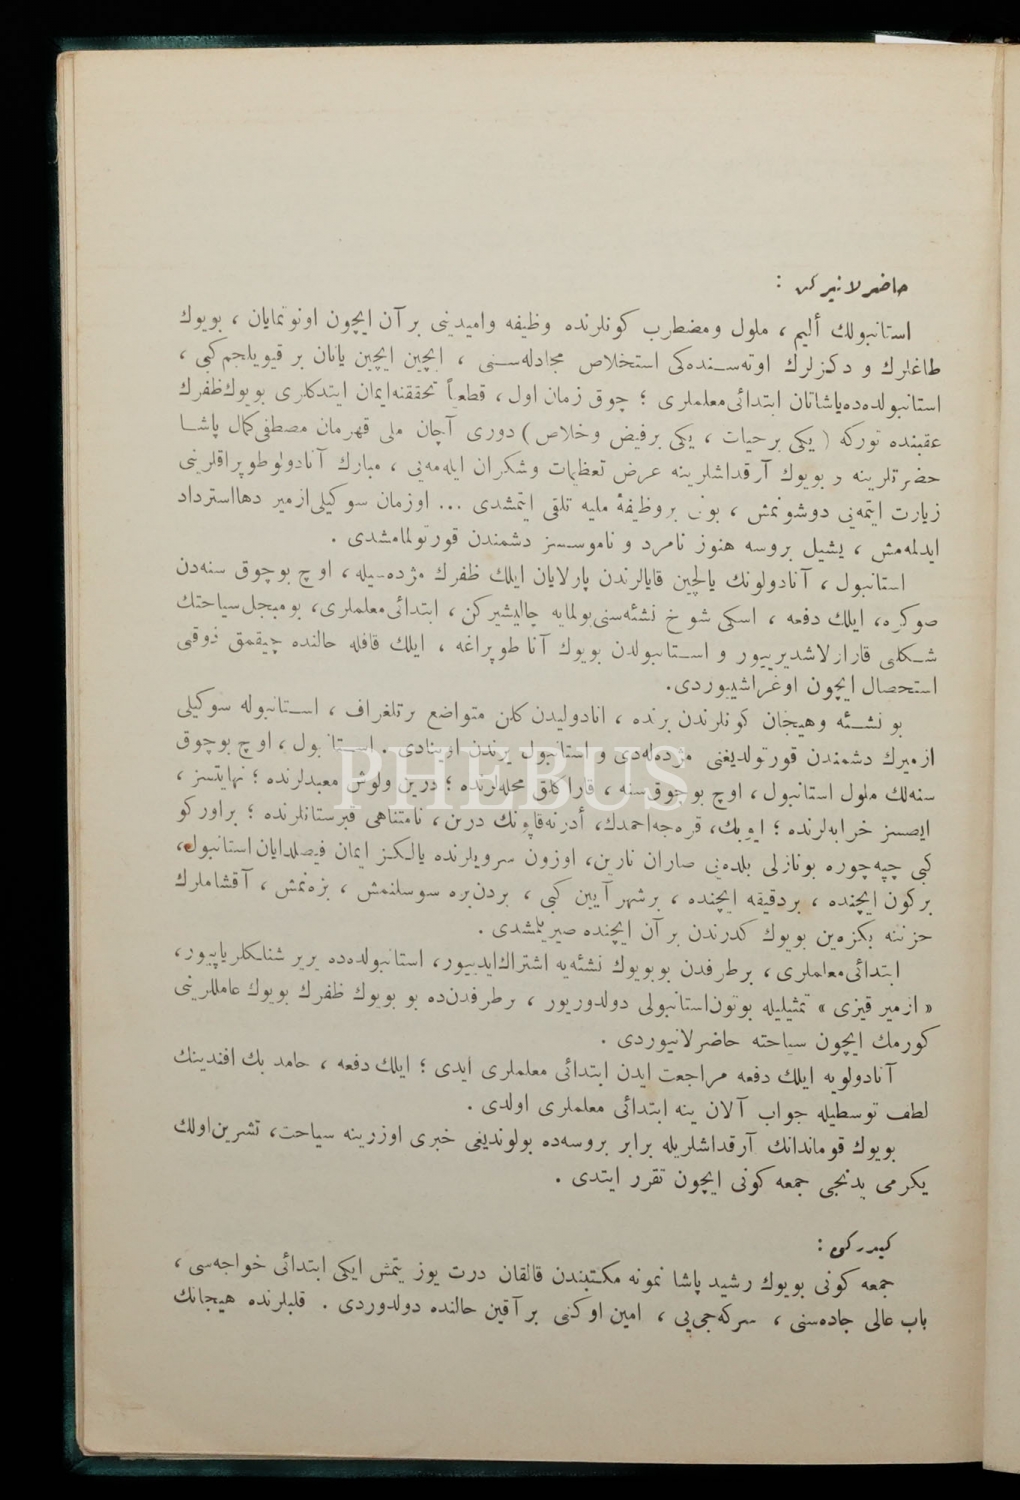 حاضرلانیركن :
استانبولك ألیم ، ملول ومضطرب كونلرنده وظیفه وامیدینی برآن ایچون اونوتمایان ، بویوك
طاغلرك و دكزلرك اوتەسنده‌كی استخلاص مجادلەسنی ، ایچین ایچین یانان بر قیویلجم كبی ،
استانبولده‌ده‌یاشاتان ابتدائی‌معلملری ؛ چوق زمان اول ، قطعیاً تحققنه‌ایمان ایتدكلری بویوك‌ظفرك
عقبنده توركه ( یكی برحیات ، یكی برفیض وخلاص ) دوری آچان ملی قهرمان مصطفی‌كمال پاشا
حضرتلرینه و بویوك آرقداشلرینه عرض تعظیمات وشكران ایله‌مه‌یی ، مبارك آنادولوطوپراقلرینی
زیارت ایتمه‌یی دوشونمش ، بونی بروظیفهٔ ملیه تلقی ایتمشدی ... اوزمان سوكیلی‌ازمیر دهااسترداد
ایدلمه‌مش ، یشیل بروسه هنوز نامرد و ناموسسز دشمندن قورتولمامشدی .
استانبول ، آنادولونك یالچین قایالرندن پارلایان ایلك ظفرك مژده‌سیله ، اوچ بوچوق سنه‌دن
صوكره، ایلك دفعه ، اسكی شوخ نشئه‌سنی‌بولمایه چالیشیركن ، ابتدائی‌معلملری، بومبجل‌سیاحتك
شكلنی قرارلاشدیرییور و استانبولدن بویوك آنا طوپراغه ، ایلك قافله حالنده چیقمق ذوقنی
استحصال ایچون اوغراشییوردی.
بو نشئه وهیجان كونلرندن برنده ، انادولیدن‌كلن متواضع برتلغراف ، استانبوله سوكیلی
ازمیرك دشمندن قورتولدیغنی مژده‌له‌دی و استانبول یرندن اوینادی . استانبول ، اوچ بوچوق
سنه‌لك ملول استانبول ، اوچ بوچوق‌سنه ، قاراكلق محله‌لرنده ؛ درین ولوش معبدلرنده ؛ نهایتسز ،
ایصسز خرابه‌لرنده ؛ ایوبك، قره‌جه‌احمدك، أدرنه‌قاپونك درین ، نامتناهی قبرستانلرنده ؛ براوركو
كبی چپه‌چوره بونازلی بلده‌یی صاران نارین، اوزون سرویلرنده یالكز ایمان فیصلدایان‌استانبول،
بركون ایچنده ، بردقیقه ایچنده ، برشهرآیین كبی ، بردن‌بره سوسلنمش ، بزه‌نمش ، آقشاملرك
حزننه بكزه‌ین بویوك كدرندن برآن ایچنده صیریلمشدی .
ابتدائی‌معلملری ، برطرفدن بوبویوك نشئه‌یه اشتراك‌ایدییور، استانبولده‌ده یریر شنلكلریاپییور،
« ازمیر قیزی » تمثیلیله بوتون‌استانبولی دولدورییور ، برطرفدن‌ده بو بویوك ظفرك بویوك عامللرینی
كورمك ایچون سیاحته حاضرلانیوردی .
آنادولویه ایلك دفعه مراجعت ایدن ابتدائی معلملری ایدی ؛ ایلك دفعه ، حامد بك افندینك
لطف توسطیله جواب آلان ینه ابتدائی معلملری اولدی .
بویوك قوماندانك آرقداشلریله برابر بروسه‌ده بولوندیغی خبری اوزرینه سیاحت، تشرین‌اولك
یكرمی یدنجی جمعه كونی ایچون تقرر ایتدی .
كیدركن :
جمعه كونی بویوك رشید پاشا نمونه مكتبندن قالقان درت یوز یتمش ایكی ابتدائی خواجه‌سی ،
باب عالی جاده‌سنی ، سركه‌جی‌یی ، امین اوكنی برآقین حالنده دولدوردی . قلبلرنده هیجانك
PHEBUS